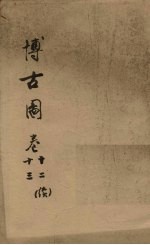 博古圖卷十二(後)
十三